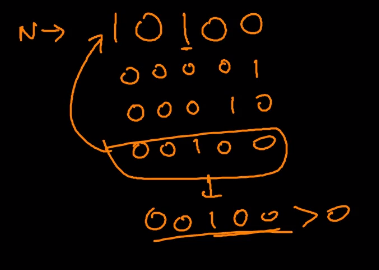 N → 10100
00001
00010
00100
00100 > 0